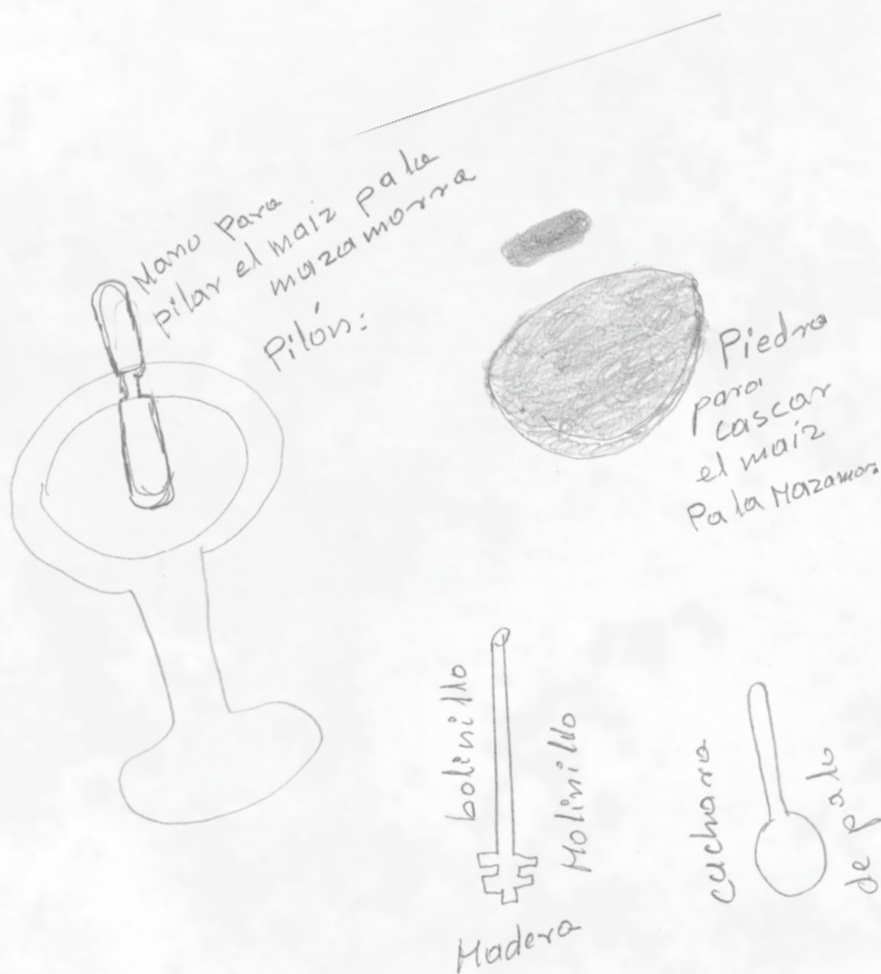 Mano para
pilar el maiz pa la
mazamorra
Pilón:
Piedra
para
cascar
el maiz
Pa la Mazamor
bolinillo
Molinillo
Madera
cuchara
de palo